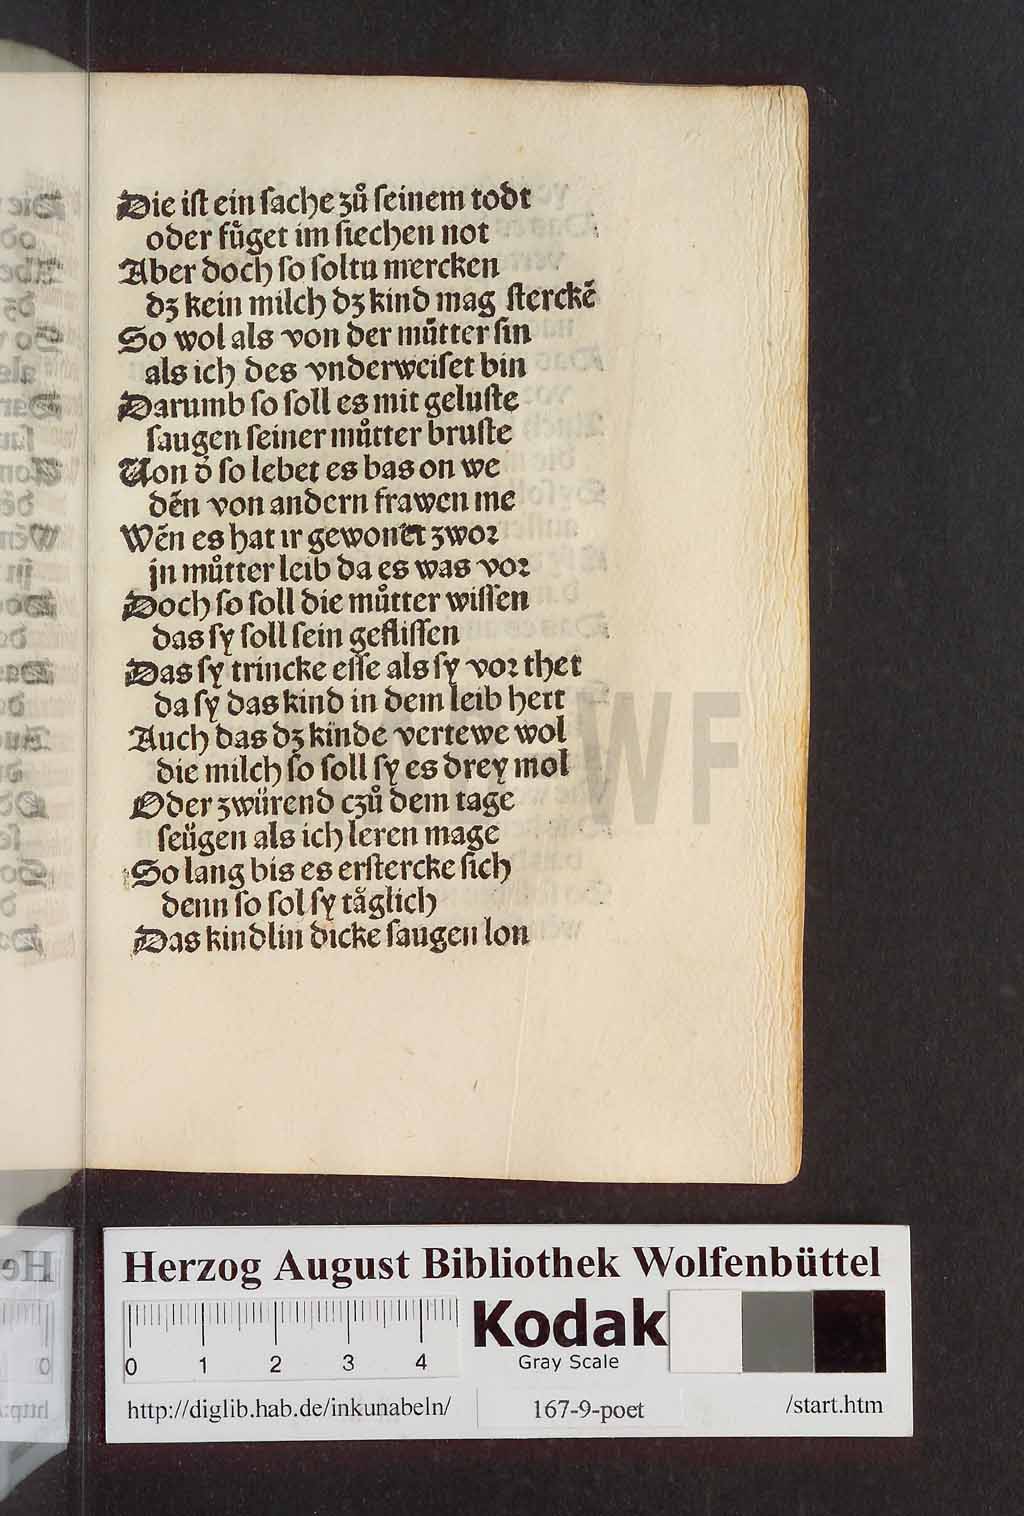 Die iſt ein ſache zů ſeinem todt
oder fůget im ſiechen not
Aber doch ſo ſoltu mercken
dʒ kein milch dʒ kind mag ſterckē
So wol als von der můtter ſin
als ich des vnderweiſet bin
Darumb ſo ſoll es mit geluſte
ſaugen ſeiner můtter bruſte
Uon d̄ ſo lebet es bas on we
dēn von andern frawen me
Wēn es hat ir gewonet zwor
jn můtter leib da es was vor
Doch ſo ſoll die můtter wiſſen
das ſy ſoll ſein gefliſſen
Das ſy trincke eſſe als ſy vor thet
da ſy das kind in dem leib hett
Auch das dʒ kinde vertewe wol
die milch ſo ſoll ſy es drey mol
Oder zwürend czů dem tage
ſeügen als ich leren mage
So lang bis es erſtercke ſich
denn ſo ſol ſy tåglich
Das kindlin dicke ſaugen lon
Herzog August Bibliothek Wolfenbüttel
Kodak
Gray Scale
0 1 2 3 4
http://diglib.hab.de/inkunabeln/ 167-9-poet /start.htm